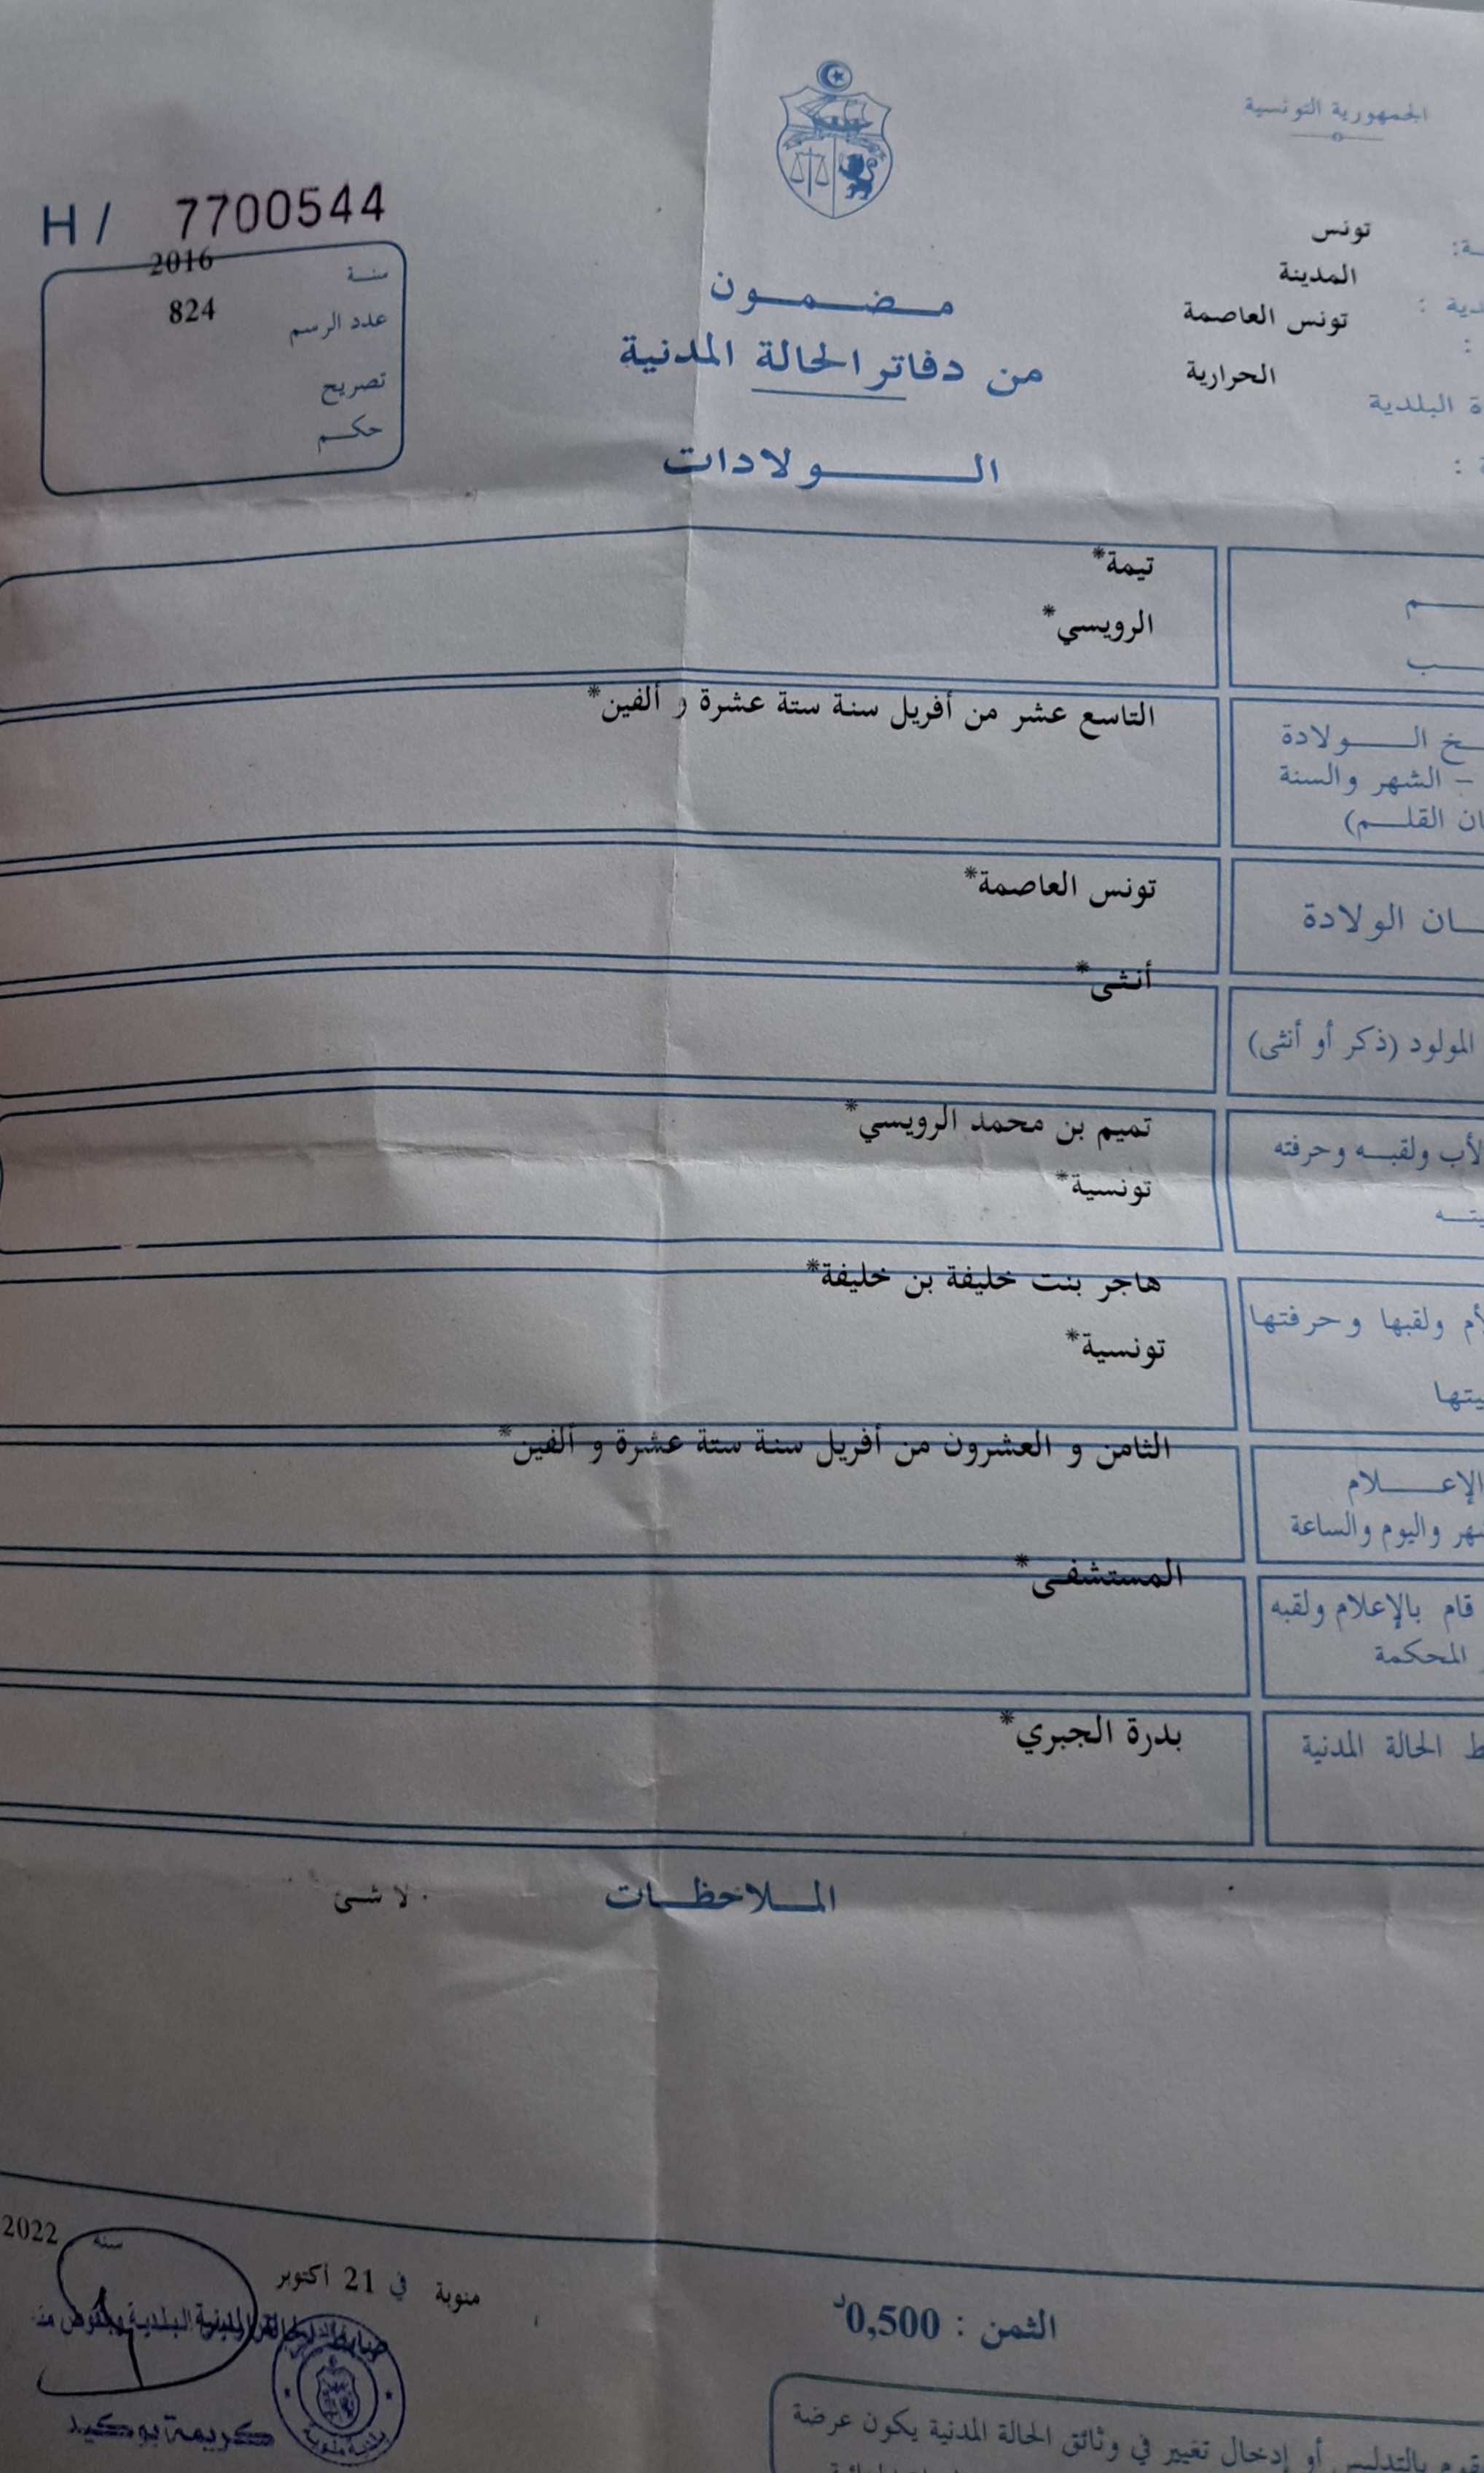 الجمهورية التونسية
H / 7700544
سنة 2016
عدد الرسم 824
تصريح
حكم
مضمون
من دفاتر الحالة المدنية
الولادات
تونس
المدينة
تونس العاصمة
البلدية الحرارية
تيمة*
الرويسي*
الولادة التاسع عشر من أفريل سنة ستة عشرة و ألفين*
– الشهر والسنة
القلم)
الولادة تونس العاصمة*
المولود (ذكر أو أنثى) أنثى*
ولقبه وحرفته تميم بن محمد الرويسي*
تونسية*
ولقبها وحرفتها هاجر بنت خليفة بن خليفة*
تونسية*
الإعلام الثامن و العشرون من أفريل سنة ستة عشرة و ألفين*
واليوم والساعة
قام بالإعلام ولقبه المستشفى*
المحكمة
الحالة المدنية بدرة الجبري*
الملاحظات
لا شئ
منوبة في 21 أكتوبر سنة 2022
الثمن : 0,500د
كريمة بوكيد
بلدية منوبة
بالتدليس أو إدخال تغيير في وثائق الحالة المدنية يكون عرضة